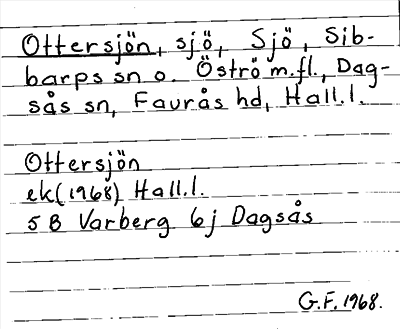 Ottersjön, sjö, Sjö, Sib-
barps sn o. Öströ m.fl., Dag-
sås sn, Faurås hd, Hall.l.
Ottersjön
ek (1968) Hall.l.
5 B Varberg 6j Dagsås
G.F. 1968.